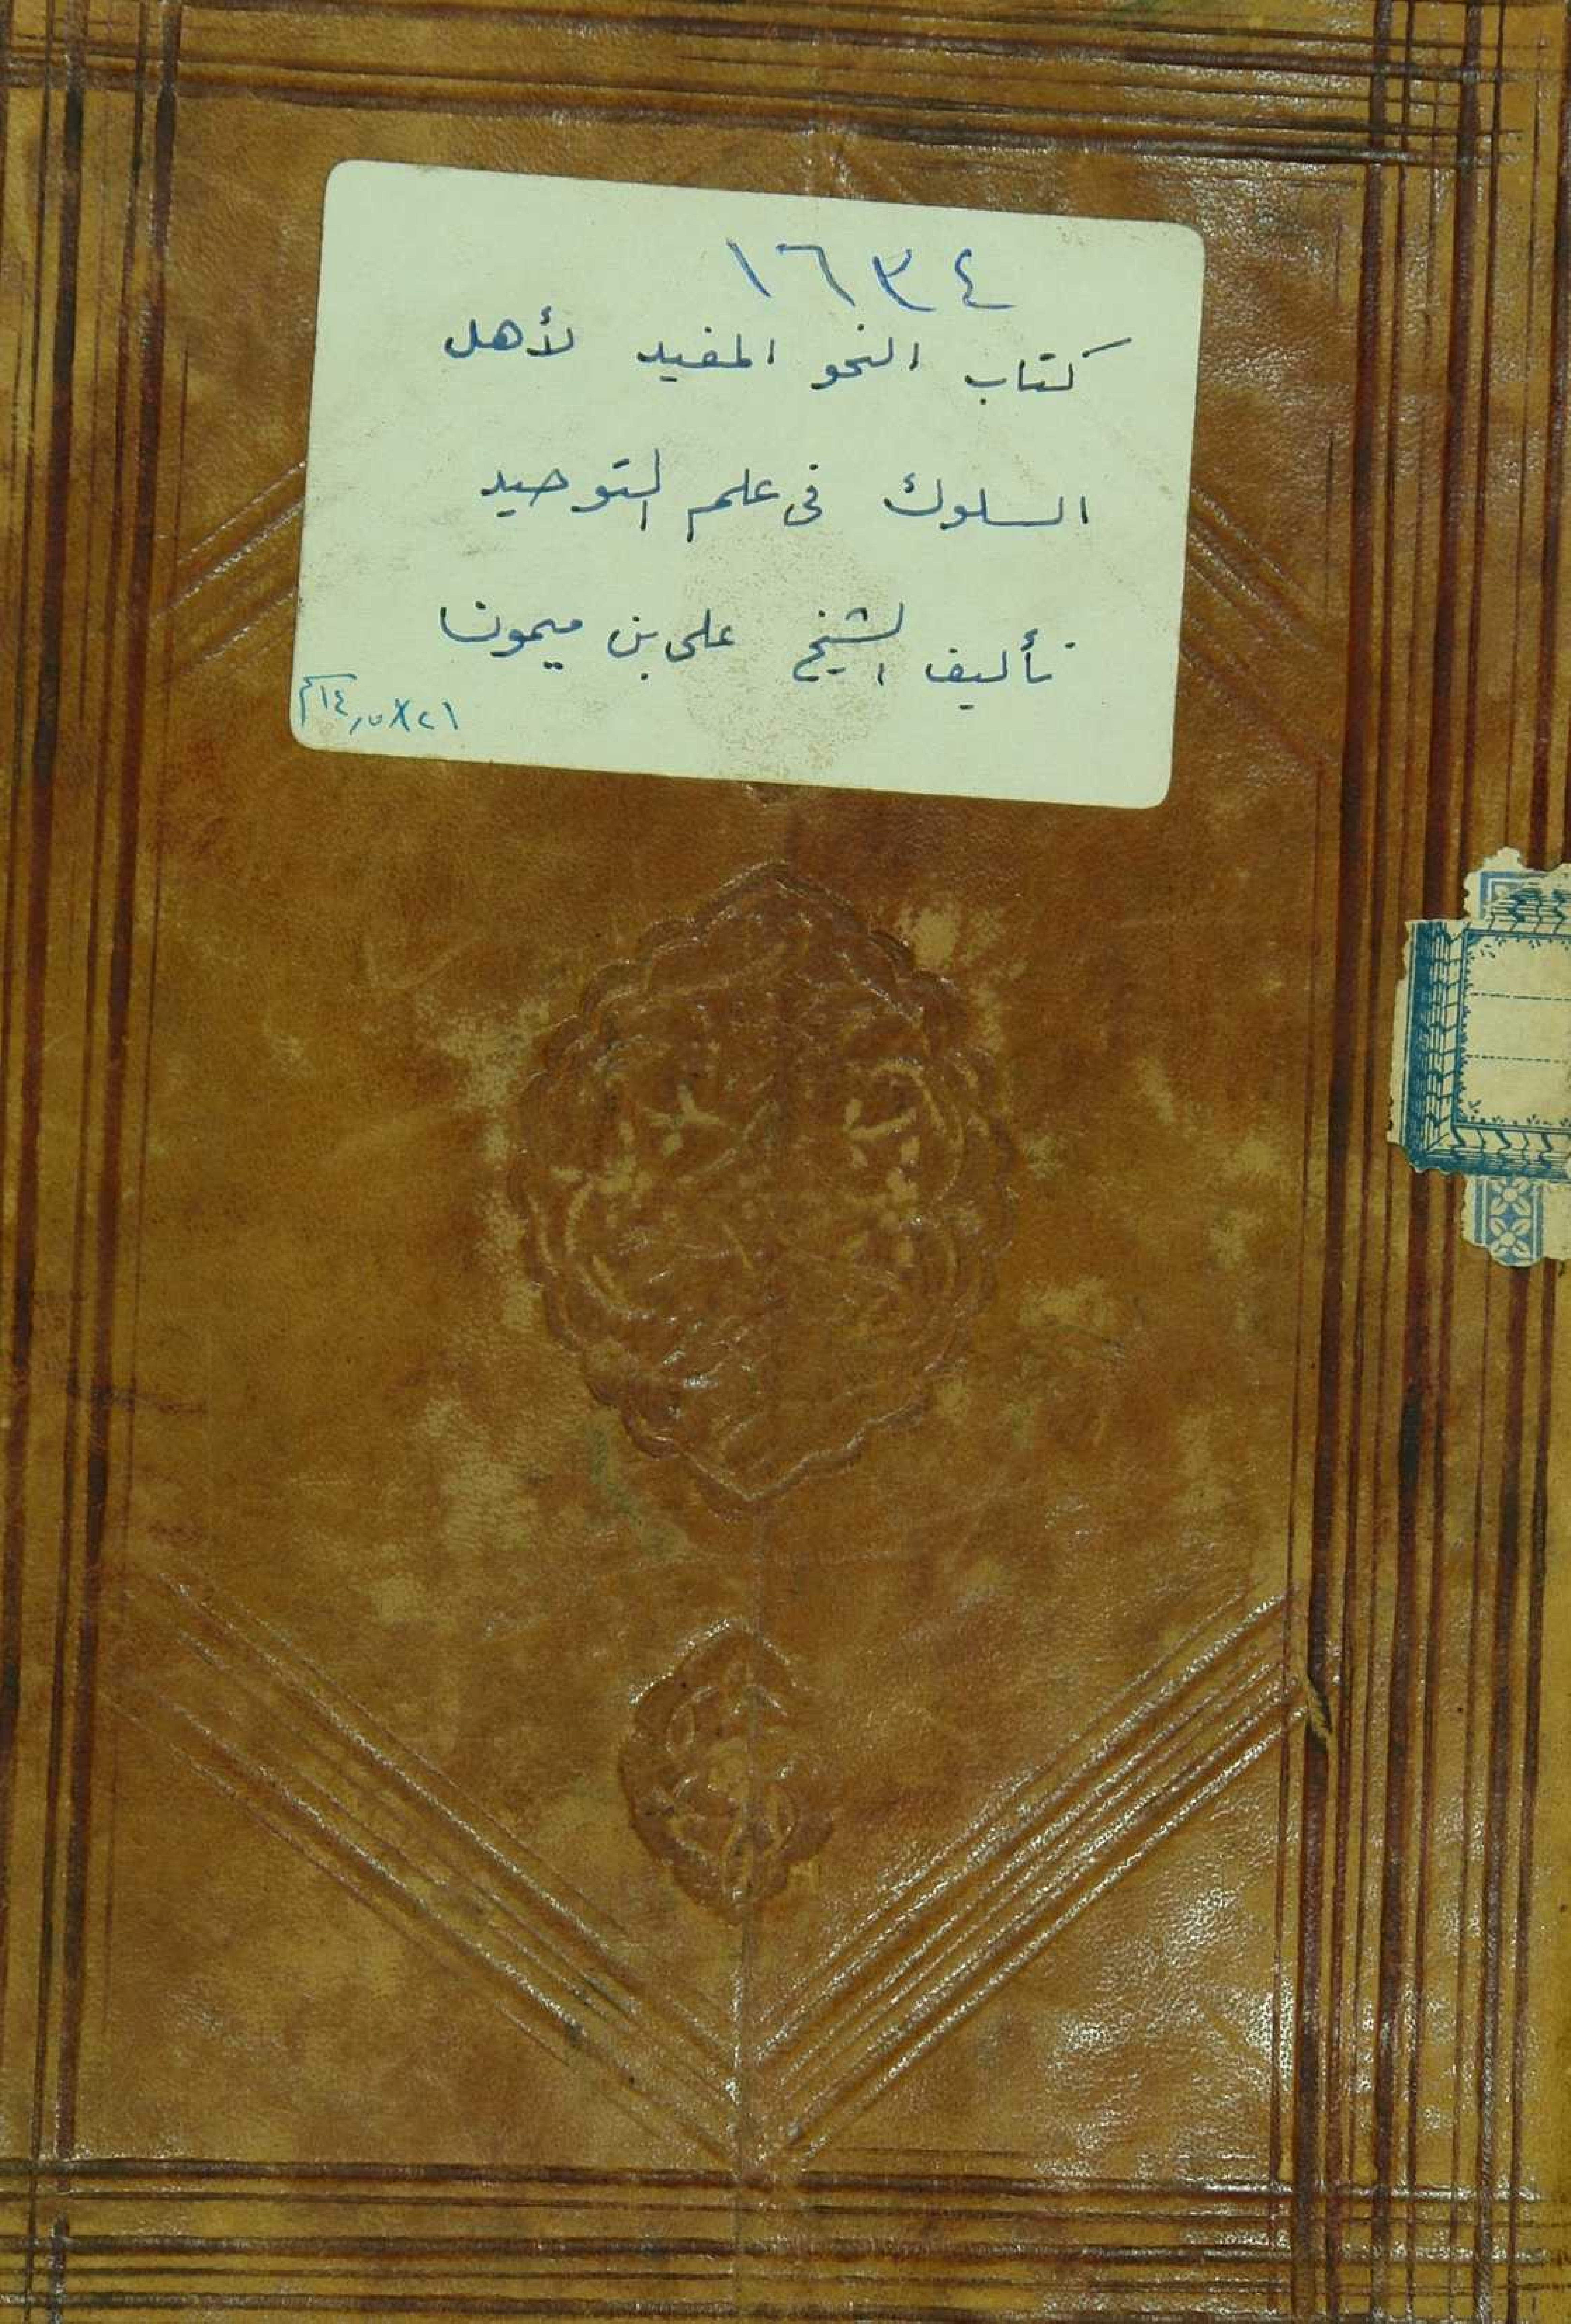 ١٦٣٤
كتاب النحو المفيد لأهل
السلوك فى علم التوحيد
تأليف الشيخ على بن ميمون